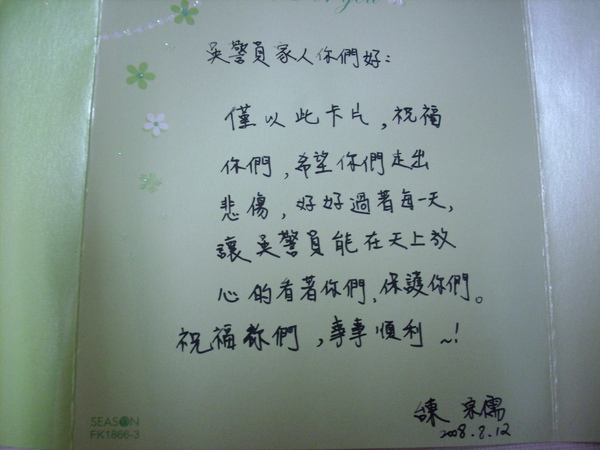 you
吳警員家人你們好：
僅以此卡片，祝福
你們，希望你們走出
悲傷，好好過著每一天，
讓吳警員能在天上放
心的看著你們，保護你們。
祝福你們，事事順利~!
宗儒
2008.8.12
SEASON
FK1866-3